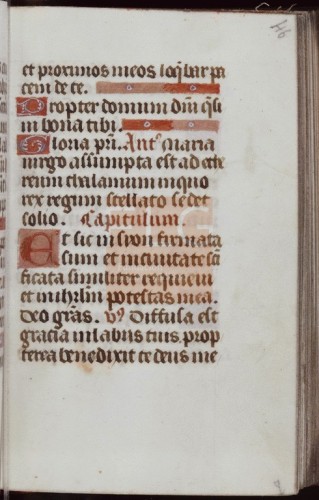 et proximos meos loq̃bar pa
cem de te.
Propter domum dñi
in bona tibi.
Gloria pri. Antᵃ Maria
uirgo assumpta est ad ethe
reum thalamum in quo
rex regum stellato sedet
solio. Capitulum.
Et sic in syon firmata
sum et in ciuitate scĩ
ficata similiter requieui
et in ihrlm̃ potestas mea.
Deo grãs. V⁹ Diffusa est
gracia in labiis tuis prop
terea benedixit te deus in e